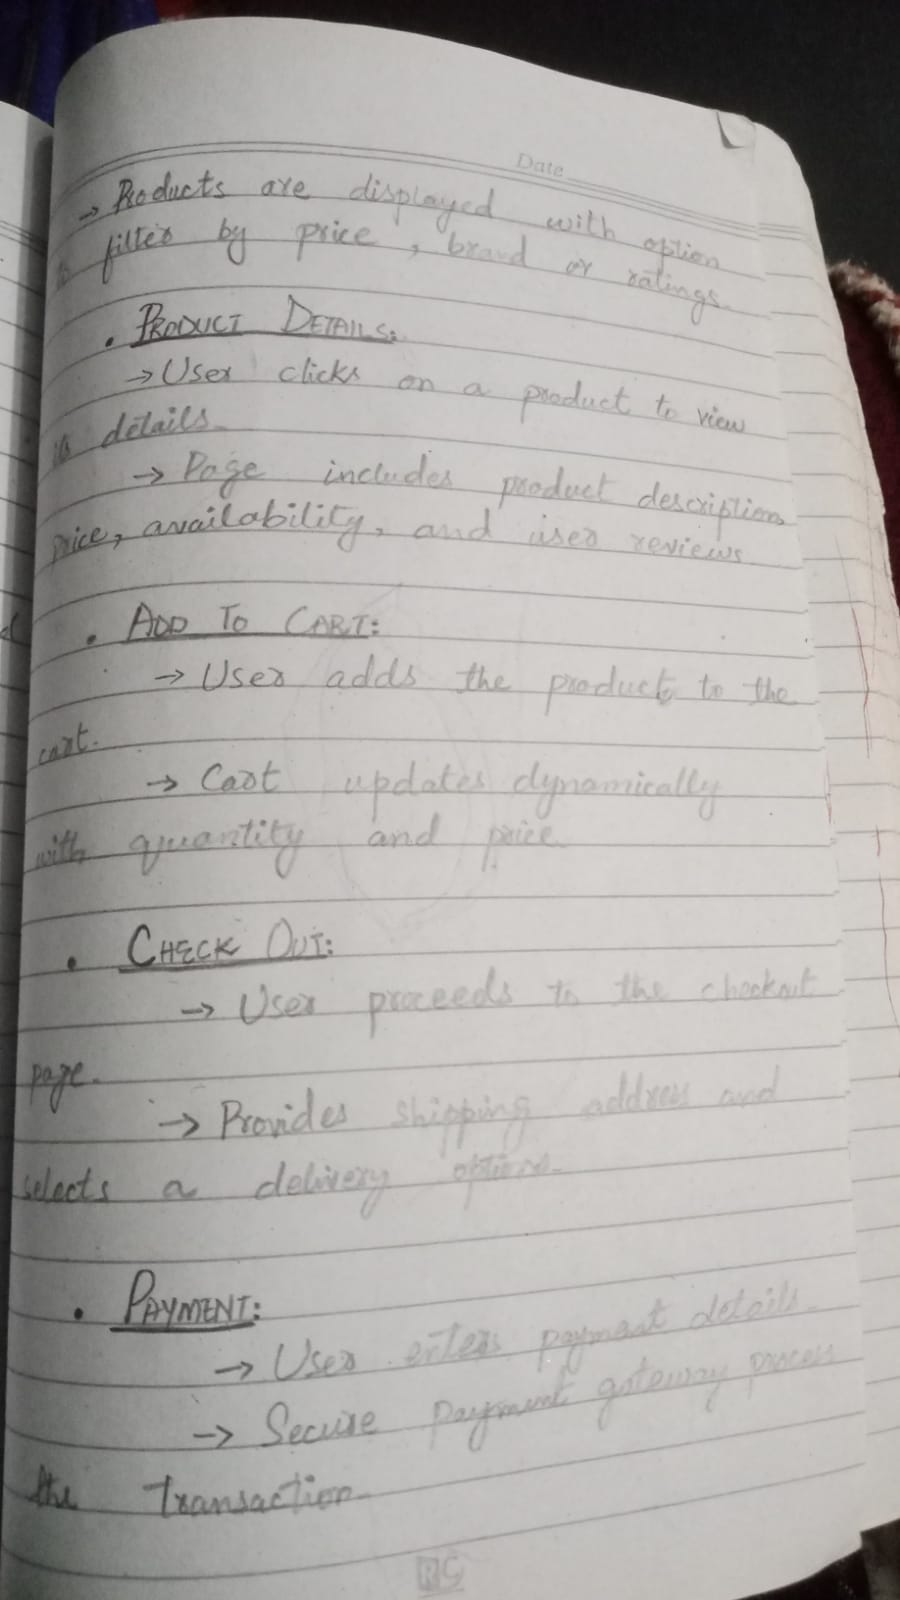 Date
→ Products are displayed with option
to filter by price, brand or ratings.
• PRODUCT DETAILS:
→ User clicks on a product to view
its details.
→ Page includes product description,
price, availability, and user reviews
• ADD TO CART:
→ User adds the product to the
cart.
→ Cart updates dynamically
with quantity and price
• CHECK OUT:
→ User proceeds to the checkout
page.
→ Provides shipping address and
selects a delivery options.
• PAYMENT:
→ User enters payment details.
→ Secure payment gateway process
the transaction.